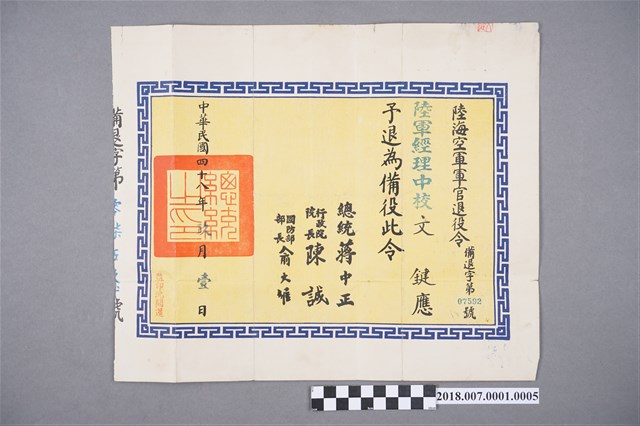 陸海空軍軍官退役令
備退字第07582號
陸軍經理中校文鍵應
予退為備役此令
總統蔣中正
行政院院長陳誠
國防部部長俞大維
中華民國四十八年柒月壹日
總統之印
備退字第
號
2018.007.0001.0005